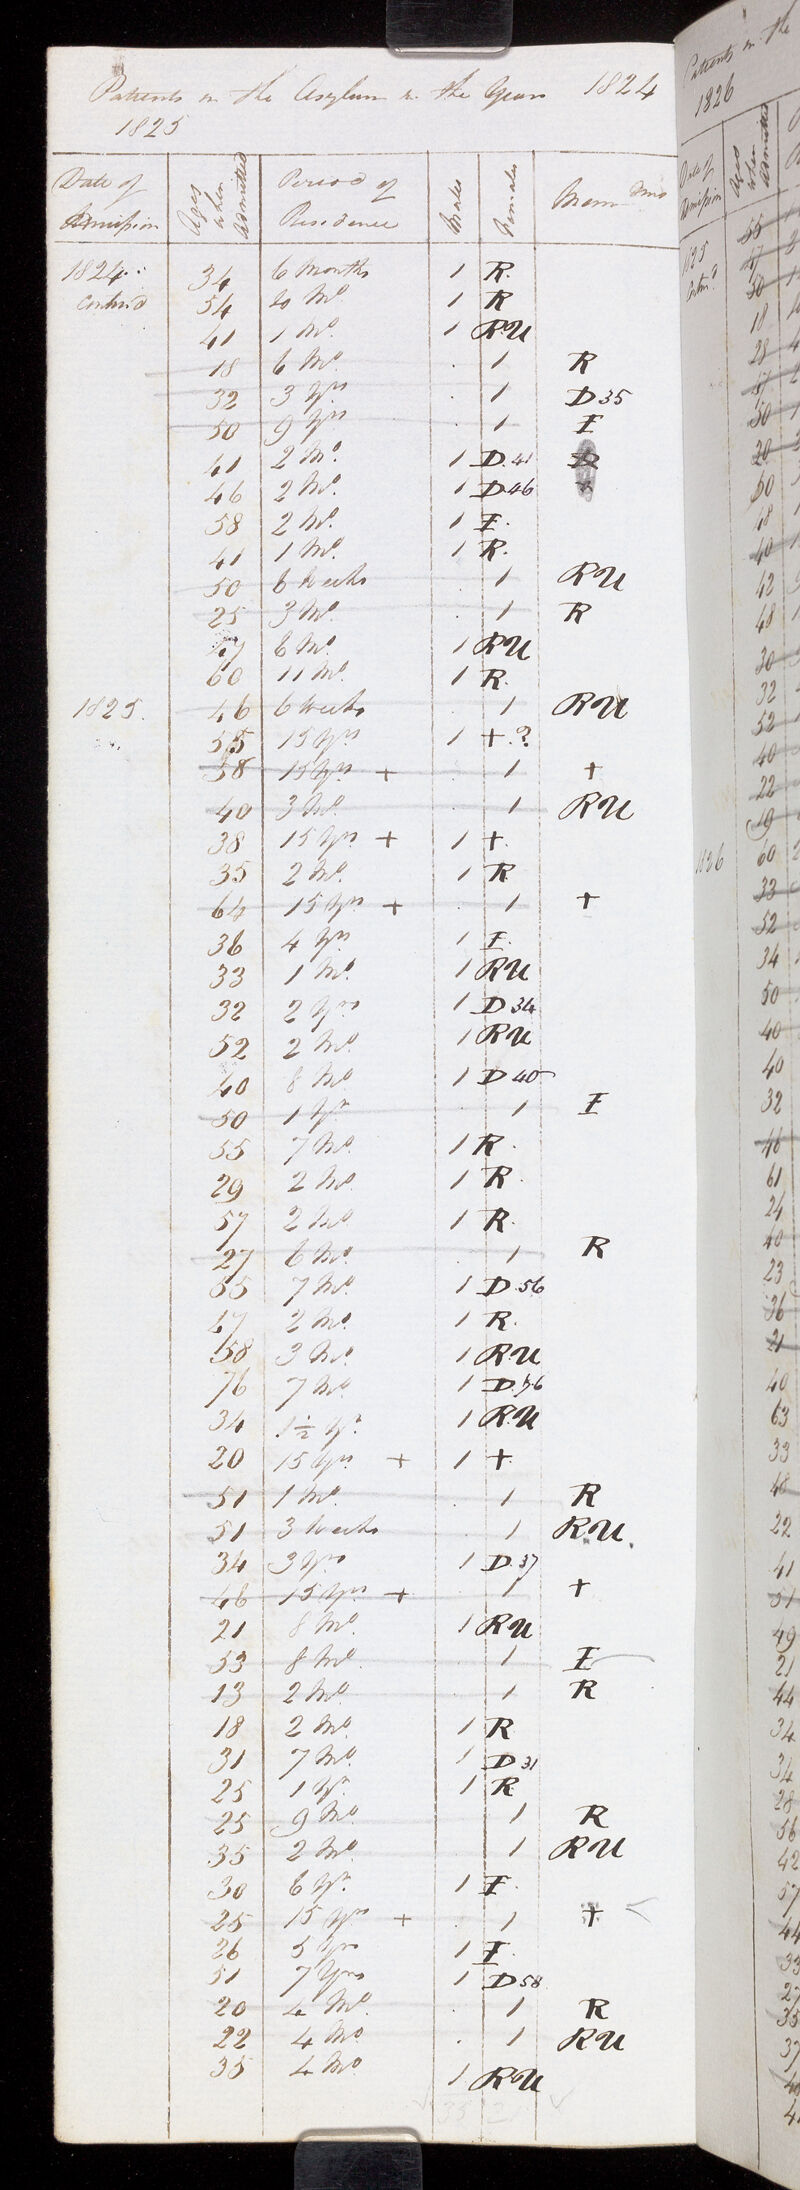 Patients in the Asylum in the Years 1824
1825
Date of Admission Ages when admitted Period of Residence Males Females Memdms
1824 34 6 Months 1 R.
Contind 54 20 Mo. 1 R
41 1 Mo. 1 RU
18 6 Mo. . 1 R
32 3 Yrs . 1 D 35
50 9 Yrs . 1 I
41 2 Mo. 1 D. 41
46 2 Mo. 1 D 46
58 2 Mo. 1 I.
41 1 Mo. 1 R.
50 6 Weeks . 1 RU
25 3 Mo. . 1 R
47 6 Mo. 1 RU
60 11 Mo. 1 R.
1825. 46 6 Weeks . 1 RU
55 15 Yrs 1 +.?
58 15 Yrs + . 1 +
40 3 Mo. . 1 RU
38 15 Yrs + 1 +.
35 2 Mo. 1 R
64 15 Yrs + . 1 +
36 4 Yrs 1 I.
33 1 Mo. 1 RU
32 2 Yrs 1 D 34
52 2 Mo. 1 RU
40 8 Mo 1 D 40
50 1 Yr . 1 I
55 7 Mo. 1 R.
29 2 Mo. 1 R.
57 2 Mo 1 R.
27 6 Mo. . 1 R
55 7 Mo. 1 D 56
47 2 Mo. 1 R.
58 3 Mo. 1 R.U
76 7 Mo. 1 D. 76
34 1½ Yr. 1 R.U
20 15 Yrs + 1 +.
51 1 Mo. . 1 R
51 3 Weeks . 1 R.U.
34 3 Yrs 1 D. 37
48 15 Yrs + . 1 +
21 8 Mo. 1 RU
53 8 Mo. . 1 I
13 2 Mo. . 1 R
18 2 Mo. 1 R
31 7 Mo. 1 D 31
25 1 Yr. 1 R.
25 9 Mo. 1 R
35 2 Mo. 1 RU
30 6 Yr. 1 I.
25 15 Yrs + . 1 +
26 5 Yrs 1 I.
51 7 Yrs 1 D 58
20 4 Mo. . 1 R
22 4 Mo . 1 RU
35 4 Mo 1 RU
35 21
Patients in the
1826
Date of Admission Ages when Admitted
1825 Contind 55
47
50
18
28
47
50
20
60
48
40
42
48
30
32
52
40
22
19
1826 60
33
52
34
50
40
40
32
46
61
24
40
23
36
21
40
63
33
48
22
41
51
49
21
44
34
34
28
56
42
57
44
33
27
35
37